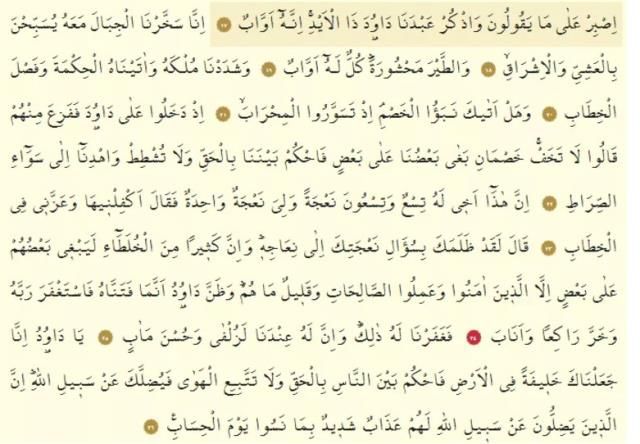 اِصْبِرْ عَلٰى مَا يَقُولُونَ وَاذْكُرْ عَبْدَنَا دَاوُ۫دَ ذَا الْاَيْدِۚ اِنَّهُٓ اَوَّابٌ ﴿١٧﴾ اِنَّا سَخَّرْنَا الْجِبَالَ مَعَهُ يُسَبِّحْنَ
بِالْعَشِيِّ وَالْاِشْرَاقِۙ ﴿١٨﴾ وَالطَّيْرَ مَحْشُورَةًۜ كُلٌّ لَهُٓ اَوَّابٌ ﴿١٩﴾ وَشَدَدْنَا مُلْكَهُ وَاٰتَيْنَاهُ الْحِكْمَةَ وَفَصْلَ
الْخِطَابِ ﴿٢٠﴾ وَهَلْ اَتٰيكَ نَبَؤُا الْخَصْمِۢ اِذْ تَسَوَّرُوا الْمِحْرَابَۙ ﴿٢١﴾ اِذْ دَخَلُوا عَلٰى دَاوُ۫دَ فَفَزِعَ مِنْهُمْ
قَالُوا لَا تَخَفْۚ خَصْمَانِ بَغٰى بَعْضُنَا عَلٰى بَعْضٍ فَاحْكُمْ بَيْنَنَا بِالْحَقِّ وَلَا تُشْطِطْ وَاهْدِنَٓا اِلٰى سَوَٓاءِ
الصِّرَاطِ ﴿٢٢﴾ اِنَّ هٰذَٓا اَخ۪ي لَهُ تِسْعٌ وَتِسْعُونَ نَعْجَةً وَلِيَ نَعْجَةٌ وَاحِدَةٌ فَقَالَ اَكْفِلْن۪يهَا وَعَزَّن۪ي فِي
الْخِطَابِ ﴿٢٣﴾ قَالَ لَقَدْ ظَلَمَكَ بِسُؤَالِ نَعْجَتِكَ اِلٰى نِعَاجِه۪ۜ وَاِنَّ كَث۪يرًا مِنَ الْخُلَطَٓاءِ لَيَبْغ۪ي بَعْضُهُمْ
عَلٰى بَعْضٍ اِلَّا الَّذ۪ينَ اٰمَنُوا وَعَمِلُوا الصَّالِحَاتِ وَقَل۪يلٌ مَا هُمْۜ وَظَنَّ دَاوُ۫دُ اَنَّمَا فَتَنَّاهُ فَاسْتَغْفَرَ رَبَّهُ
وَخَرَّ رَاكِعًا وَاَنَابَ ﴿٢٤﴾ فَغَفَرْنَا لَهُ ذٰلِكَۜ وَاِنَّ لَهُ عِنْدَنَا لَزُلْفٰى وَحُسْنَ مَاٰبٍ ﴿٢٥﴾ يَا دَاوُ۫دُ اِنَّا
جَعَلْنَاكَ خَل۪يفَةً فِي الْاَرْضِ فَاحْكُمْ بَيْنَ النَّاسِ بِالْحَقِّ وَلَا تَتَّبِعِ الْهَوٰى فَيُضِلَّكَ عَنْ سَب۪يلِ اللّٰهِۜ اِنَّ
الَّذ۪ينَ يَضِلُّونَ عَنْ سَب۪يلِ اللّٰهِ لَهُمْ عَذَابٌ شَد۪يدٌ بِمَا نَسُوا يَوْمَ الْحِسَابِ۟ ﴿٢٦﴾